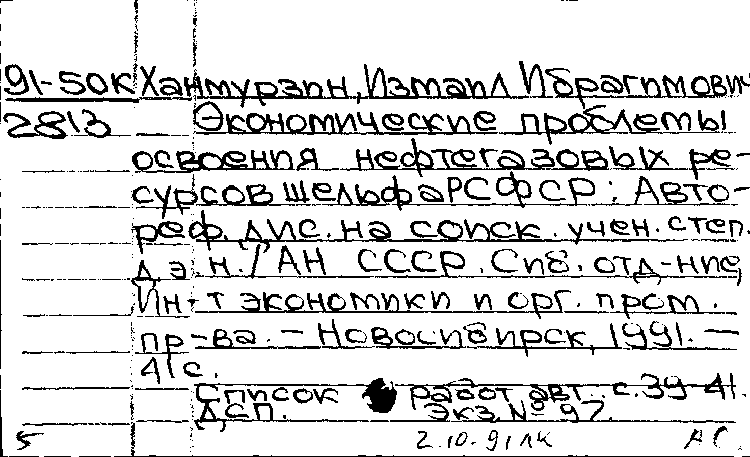 91-50К Ханмурзин, Измаил Ибрагимович
2813 Экономические проблемы
освоения нефтегазовых ре-
сурсов шельфа РСФСР: Авто-
реф. дис. на соиск. учен. степ.
д.э.н. / АН СССР. Сиб. отд-ние,
Ин-т экономики и орг. пром.
пр-ва. – Новосибирск, 1991. –
41 с.
Список работ авт. с. 39-41.
ДСП. Экз. № 97.
5 2.10.91 ЛК АС